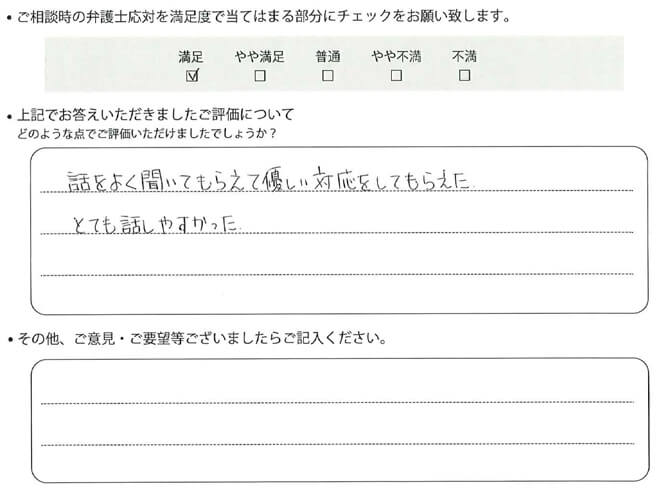 • ご相談時の弁護士応対を満足度で当てはまる部分にチェックをお願い致します。
満足 やや満足 普通 やや不満 不満
☑ ☐ ☐ ☐ ☐
• 上記でお答えいただきましたご評価について
どのような点でご評価いただけましたでしょうか？
話をよく聞いてもらえて優しい対応をしてもらえた
とても話しやすかった.
• その他、ご意見・ご要望等ございましたらご記入ください。